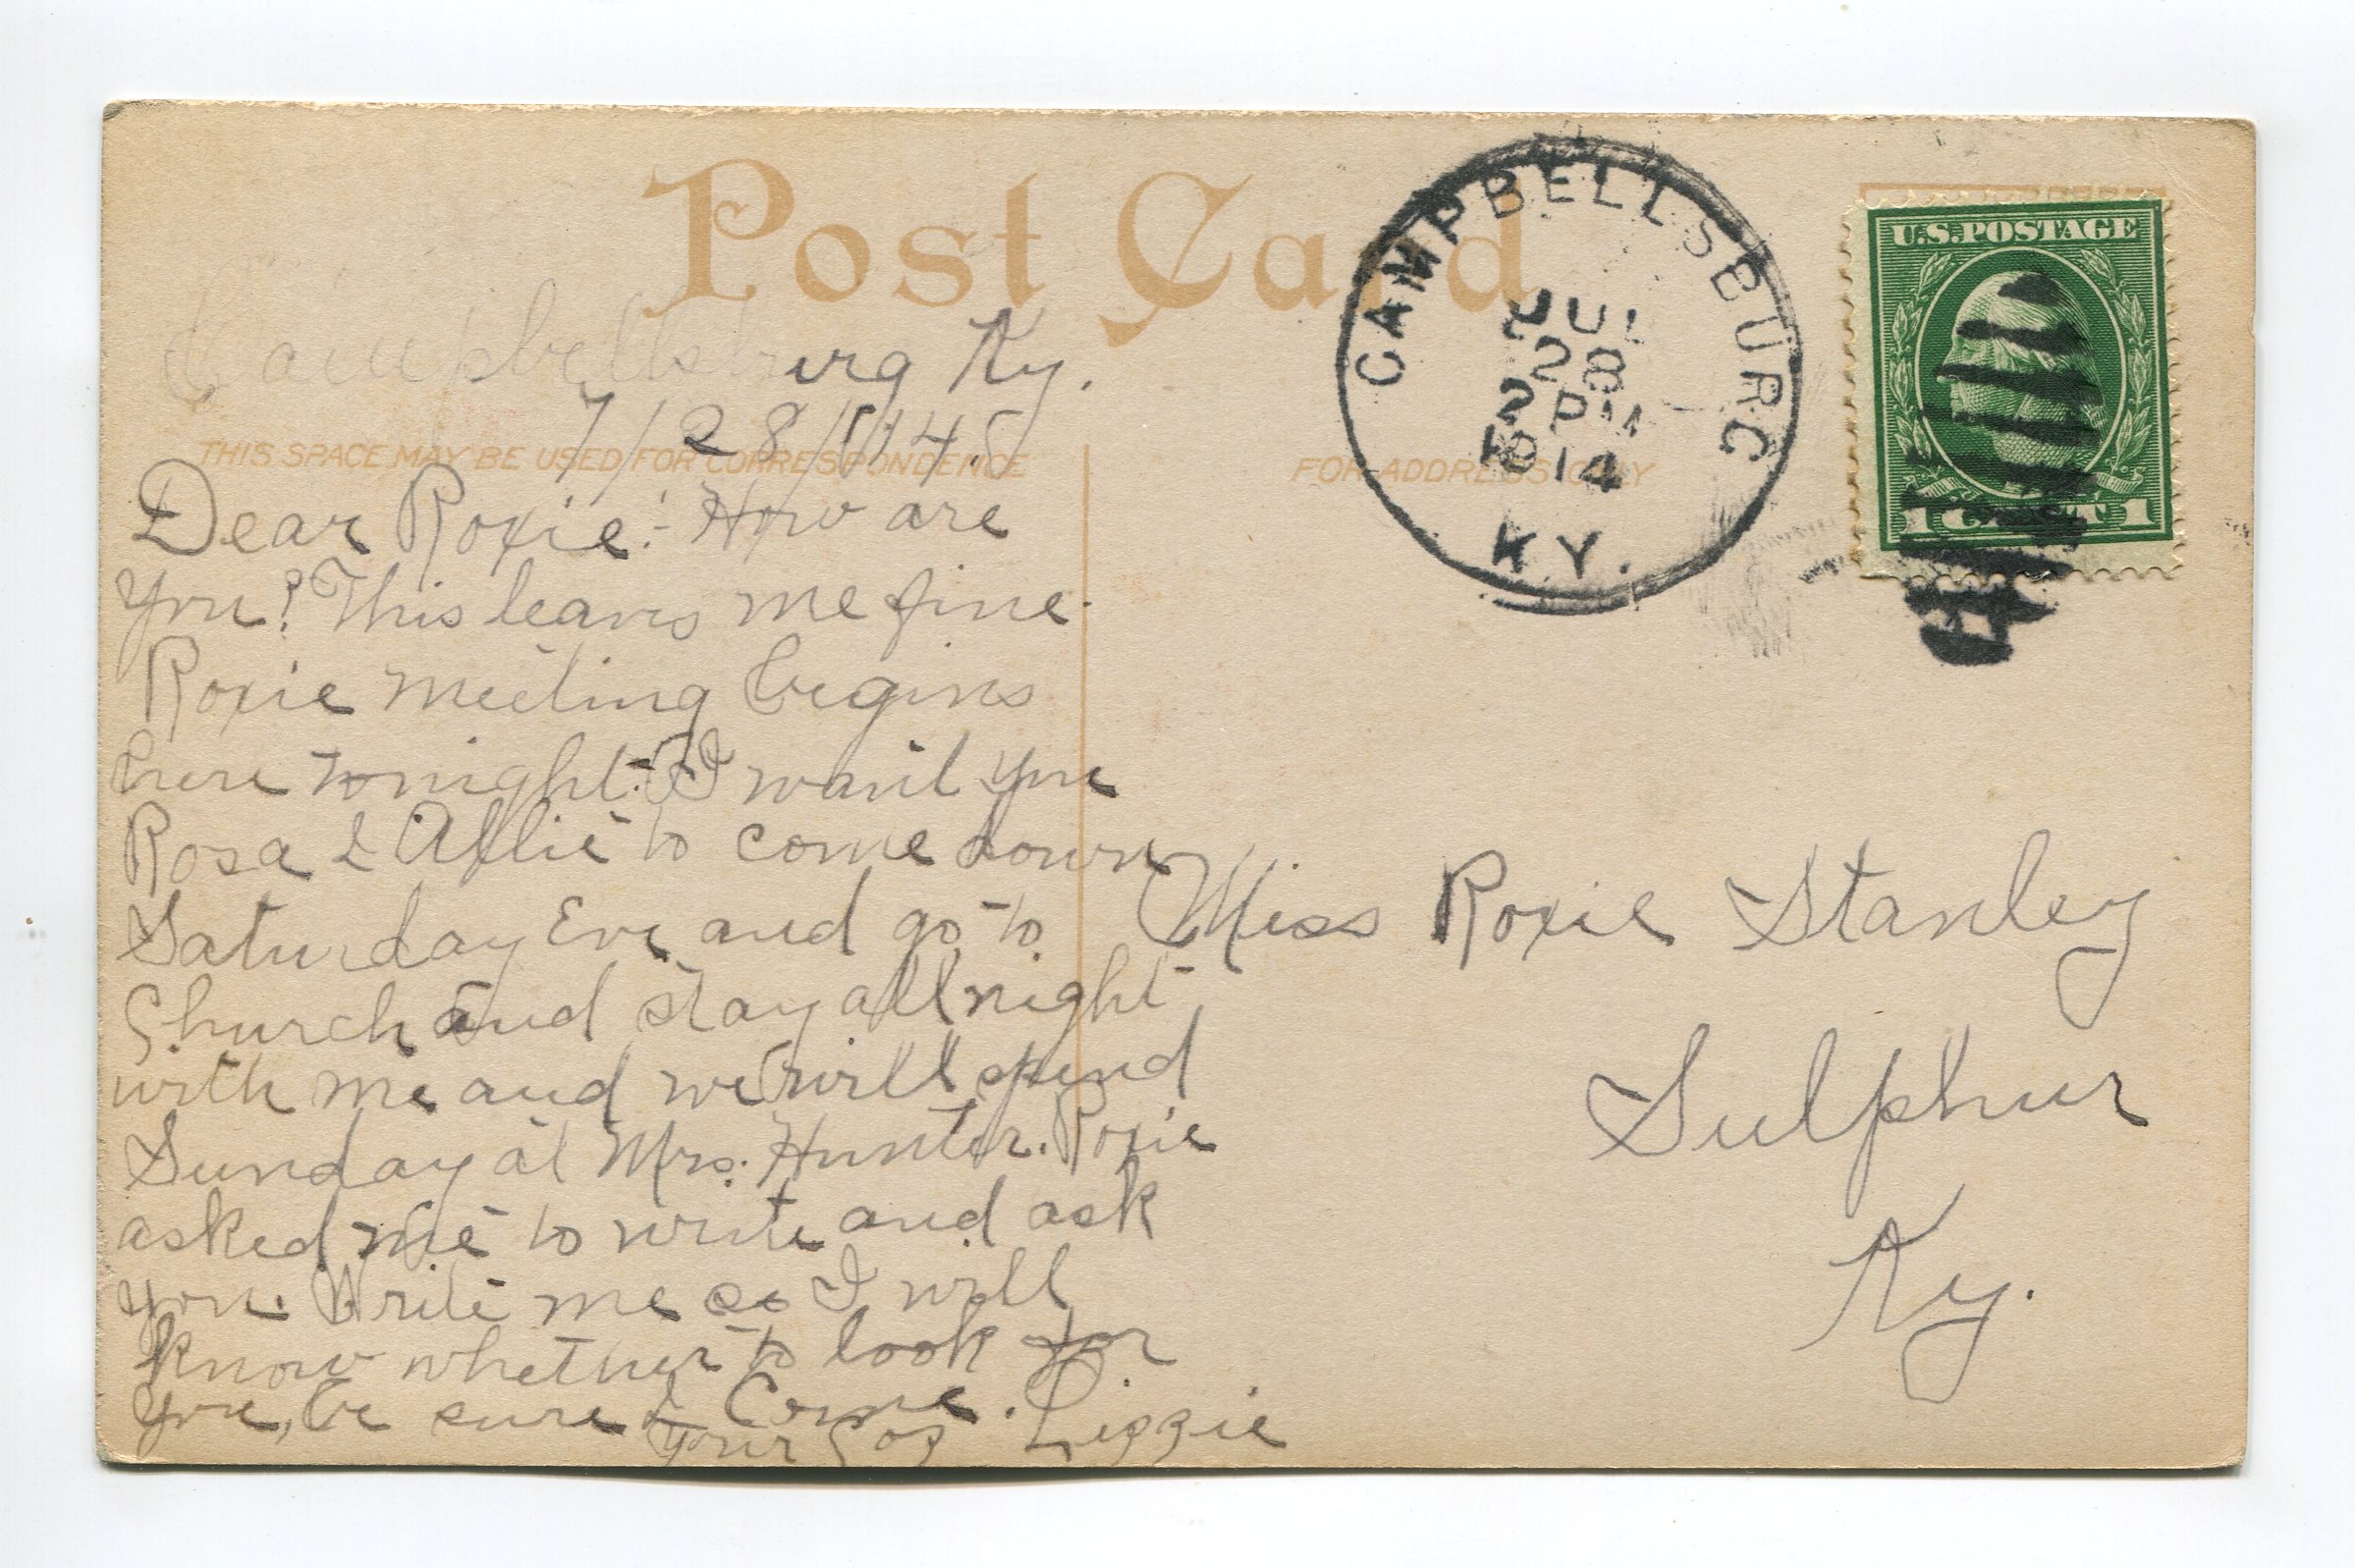 Post Card
Campbellsburg Ky.
7/28/14.
THIS SPACE MAY BE USED FOR CORRESPONDENCE
Dear Roxie:- How are
you? This leaves me fine.
Roxie meeting begins
here tonight. I want you
Rosa & Allie to come down
Saturday Eve and go to
Church and stay all night
with me and we will spend
Sunday at Mrs. Hunter. Roxie
asked me to write and ask
you. Write me so I will
know whether to look for
you, be sure & Come.
Your Coz Lizzie
CAMPBELLSBURG
JUL
28
2 PM
1914
KY.
U.S. POSTAGE
1 CENT 1
FOR ADDRESS ONLY
Miss Roxie Stanley
Sulphur
Ky.